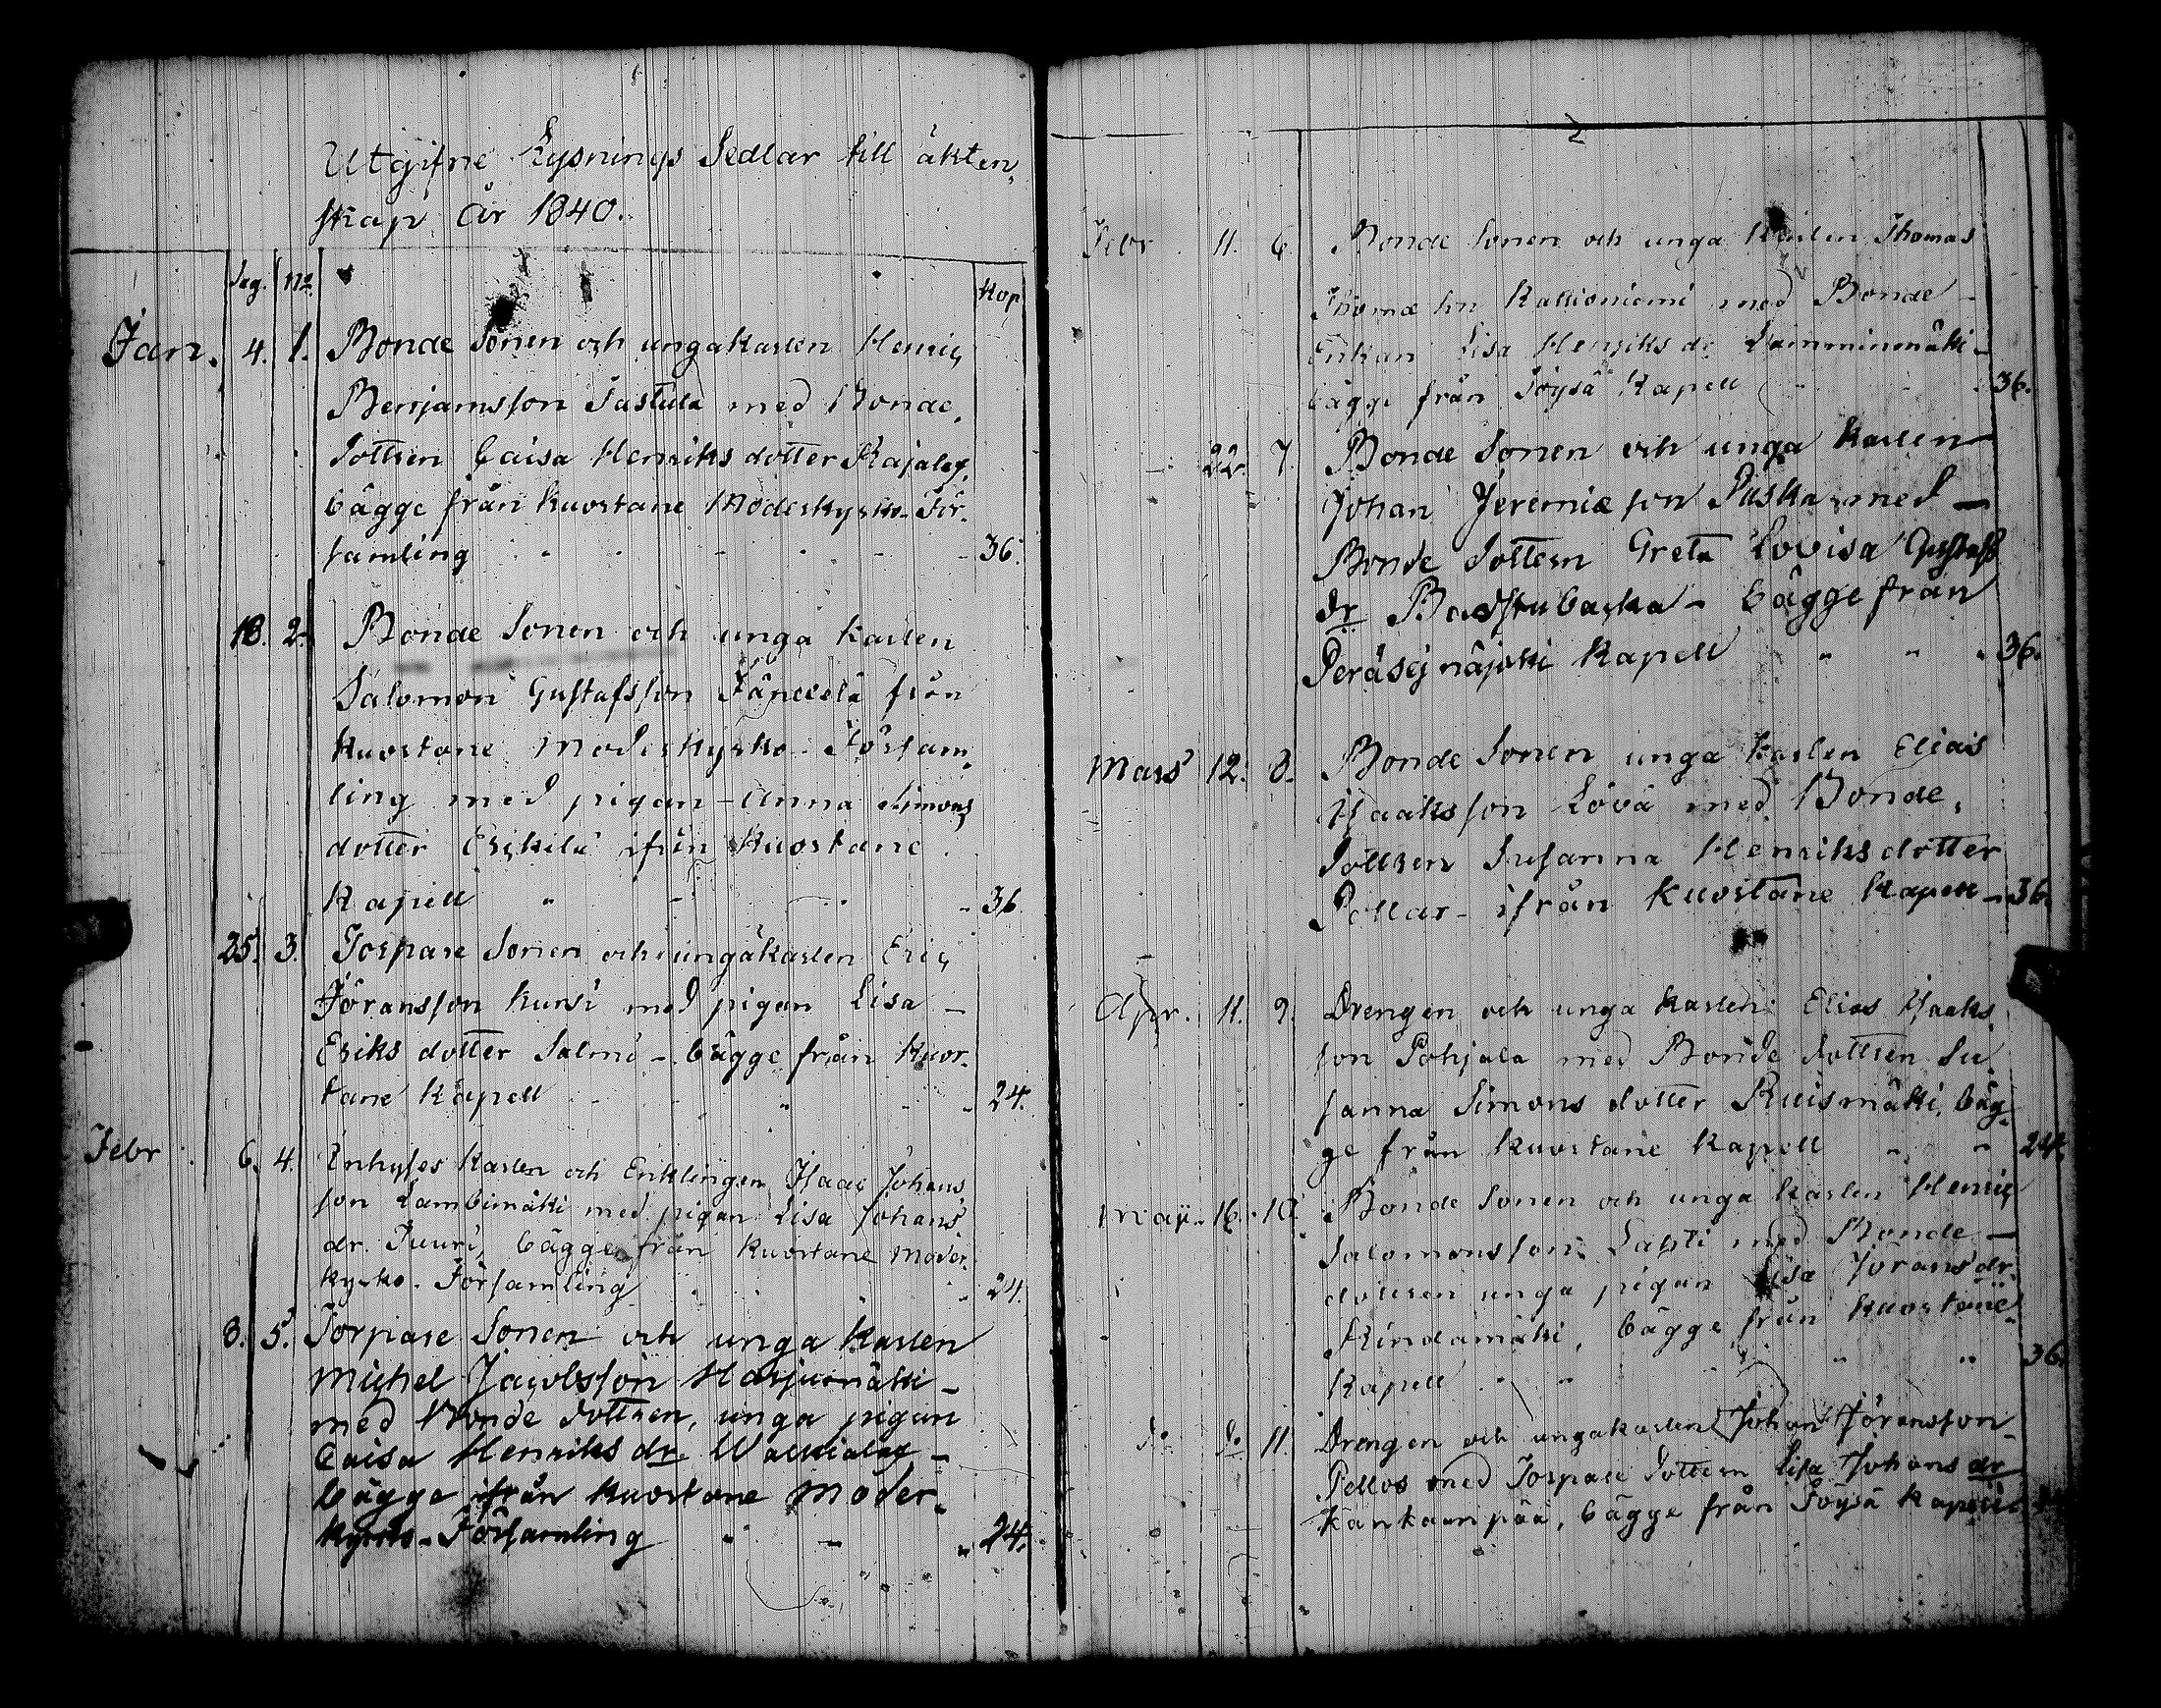 Utgifne Lysnings Sedlar till äkten,
skap År 1840.
Dag. No. Kop
Jan. 4. 1. Bonde Sonen och ungakarlen Henric
Benjamsson Sastula med Bonde,
Dottren Caisa Henriks dotter Rajalax
bägge från Kuortane Moderkyrko-För-
samling " - " - - 36.
18. 2. Bonde Sonen och unga karlen
Salomon Gustafsson från
Kuortane Moderkyrko-Församm,
ling med pigan - Anna Simons
dotter Erckilä ifrån Kuortane
Kapell " - " - 36
25. 3. Torpare Sonen och ungakarlen Eric
Jöransson Kursi med pigan Lisa -
Eriks dotter Salmi - bägge från Kuor-
tane Kapell - - " - - 24.
Febr 6. 4. Inhyses Karlen och Enklingen Isaac Johans,
son Lambimäki med pigan Lisa Johans
dr. Juuri, bägge från Kuortane Moder,
kyrko-Församling - 24.
8. 5. Torpare Sonen och unga karlen
Michel Jacobsson Harjunmäki -
med Bonde Dottren, unga pigan
Caisa Henriks dr. -
bägge ifrån Kuortane Moder,
kyrko-Församling " - " 24.
2
Febr. 11. 6 Bonde Sonen och unga Karlen Thomas
Thomæ son Kallioniemi med Bonde -
Enkan Lisa Henriks dr Lamminmäki -
bägge från Töysä Kapell " - 36.
- 22. 7. Bonde Sonen och unga karlen -
Johan Jeremiæ son Puska med -
Bonde Dottern Greta Lovisa Gustafs
dr Badstubacka - bägge från
Peräsejnäjoki Kapell " " " 36.
Mars 12. 8. Bonde Sonen unga karlen Elias
Isaaksson Lövä med Bonde,
Dottren Susanna Henriksdotter
Pollar - ifrån Kuortane Kapell - 36.
Apr. 11. 9. Drengen och unga karlen Elias Isaaks,
son Pohjala med Bonde dottren Su,
sanna Simons dotter Ruismäki, bäg,
ge från Kuortane Kapell " " 24
May. 16. 10. Bonde Sonen och unga karlen Henric
Salomonsson Lahti med Bonde -
dottren unga pigan Lisa Jörans dr.
Rindamäki, bägge från Kuortane
Kapell " " " " " 36.
do do 11. Drengen och ungakarlen Johan Jöransson
Pellos med Torpare Dottern Lisa Johans dr
Kankaanpää, bägge från Töysä Kapell